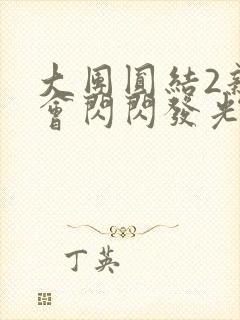 大團圓結2新
會閃閃發光
丁英